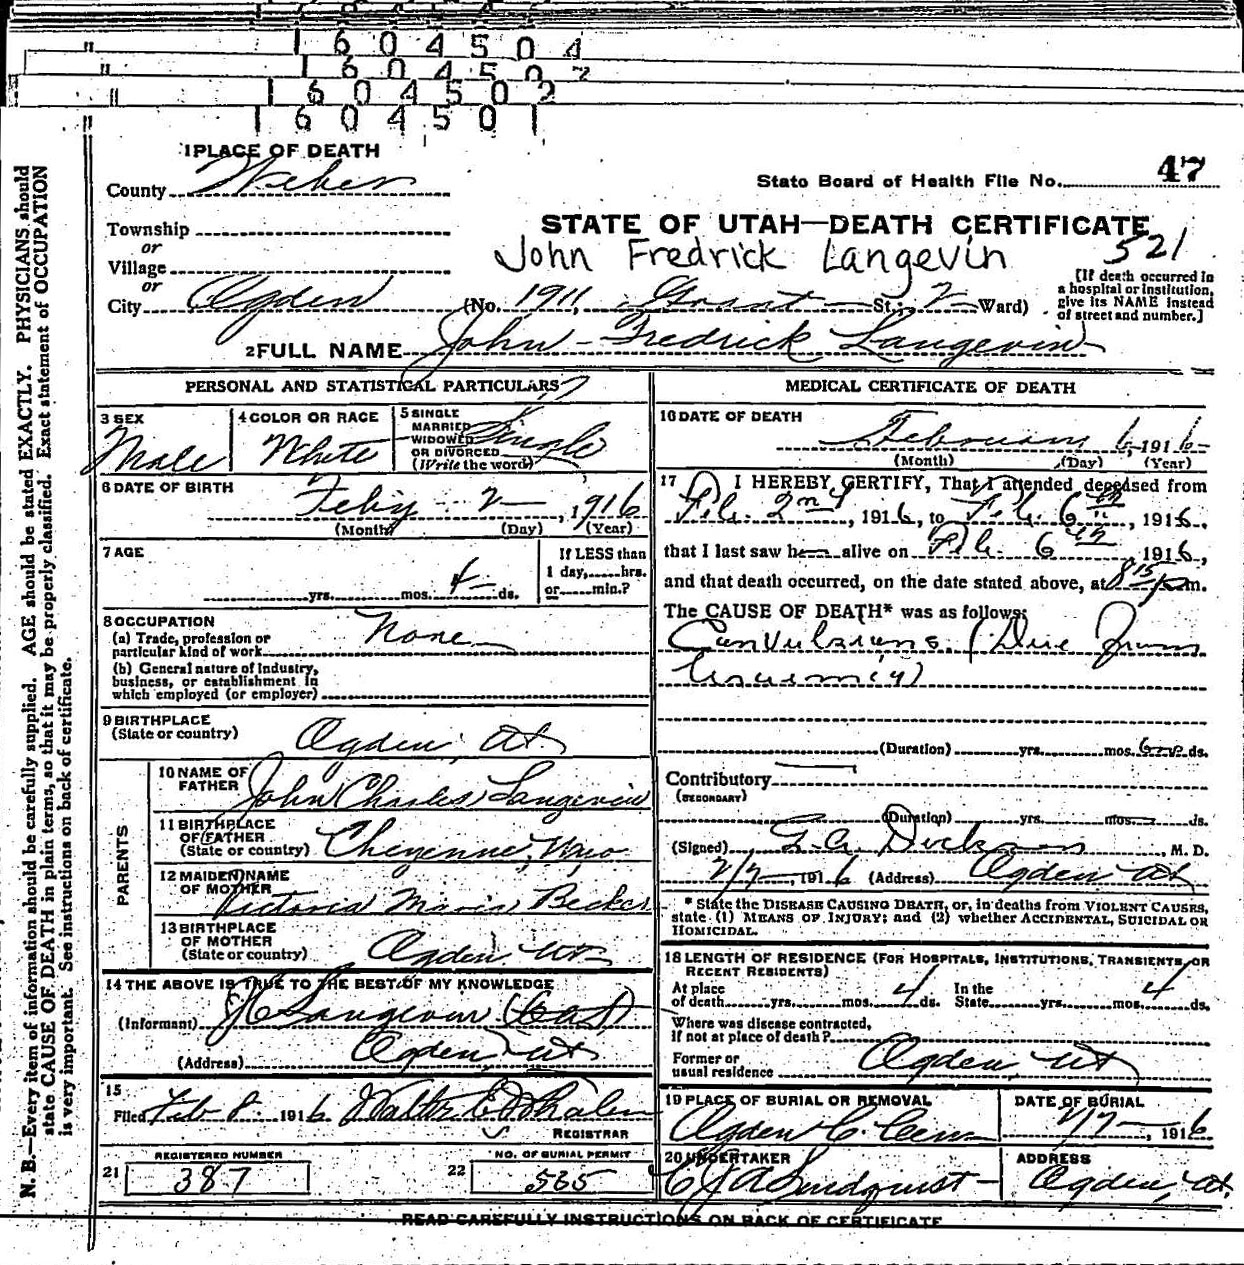 1 6 0 4 5 0 4
1 6 0 4 5 0 2
1 6 0 4 5 0 2
1 6 0 4 5 0 1
1 PLACE OF DEATH
County Weber
State Board of Health File No. 47
Township
or
Village
or
STATE OF UTAH—DEATH CERTIFICATE
John Fredrick Langevin 521
City Ogden (No. 1911, Grant St.; 2 Ward)
[If death occurred in a hospital or institution, give its NAME instead of street and number.]
2 FULL NAME John Fredrick Langevin
PERSONAL AND STATISTICAL PARTICULARS
3 SEX
Male
4 COLOR OR RACE
White
5 SINGLE
MARRIED
WIDOWED
OR DIVORCED
(Write the word)
Single
6 DATE OF BIRTH
Feby 2, 1916
(Month) (Day) (Year)
7 AGE
yrs. mos. 4 ds.
If LESS than
1 day, hrs.
or min.?
8 OCCUPATION
(a) Trade, profession or
particular kind of work None
(b) General nature of industry,
business, or establishment in
which employed (or employer)
9 BIRTHPLACE
(State or country) Ogden, Ut.
PARENTS
10 NAME OF
FATHER John Charles Langevin
11 BIRTHPLACE
OF FATHER
(State or country) Cheyenne, Wyo.
12 MAIDEN NAME
OF MOTHER Victoria Maria Becker
13 BIRTHPLACE
OF MOTHER
(State or country) Ogden Ut
14 THE ABOVE IS TRUE TO THE BEST OF MY KNOWLEDGE
(Informant) J C Langevin
(Address) Ogden Ut
15
Filed Feb 8. 1916 Walter E Whalen
REGISTRAR
REGISTERED NUMBER
21 387
NO. OF BURIAL PERMIT
22 565
MEDICAL CERTIFICATE OF DEATH
16 DATE OF DEATH
February 6, 1916
(Month) (Day) (Year)
17 I HEREBY CERTIFY, That I attended deceased from
Feb. 2nd, 1916, to Feb. 6th, 1916,
that I last saw h alive on Feb. 6th, 1916,
and that death occurred, on the date stated above, at 8 15 m.
The CAUSE OF DEATH* was as follows:
Convulsions. (Due from
Uraemia)
(Duration) yrs. mos. ds.
Contributory
(SECONDARY)
(Duration) yrs. mos. ds.
(Signed) , M. D.
2/7, 1916 (Address) Ogden Ut
* State the DISEASE CAUSING DEATH, or, in deaths from VIOLENT CAUSES,
state (1) MEANS OF INJURY; and (2) whether ACCIDENTAL, SUICIDAL OR
HOMICIDAL.
18 LENGTH OF RESIDENCE (FOR HOSPITALS, INSTITUTIONS, TRANSIENTS, OR
RECENT RESIDENTS)
At place In the
of death yrs. mos. 4 ds. State yrs. mos. 4 ds.
Where was disease contracted,
if not at place of death?
Former or
usual residence Ogden, Ut
19 PLACE OF BURIAL OR REMOVAL
Ogden C. Cem
DATE OF BURIAL
2/7, 1916
20 UNDERTAKER
ADDRESS
Ogden, Ut.
READ CAREFULLY INSTRUCTIONS ON BACK OF CERTIFICATE
N. B.—Every item of information should be carefully supplied. AGE should be stated EXACTLY. PHYSICIANS should
state CAUSE OF DEATH in plain terms, so that it may be properly classified. Exact statement of OCCUPATION
is very important. See instructions on back of certificate.